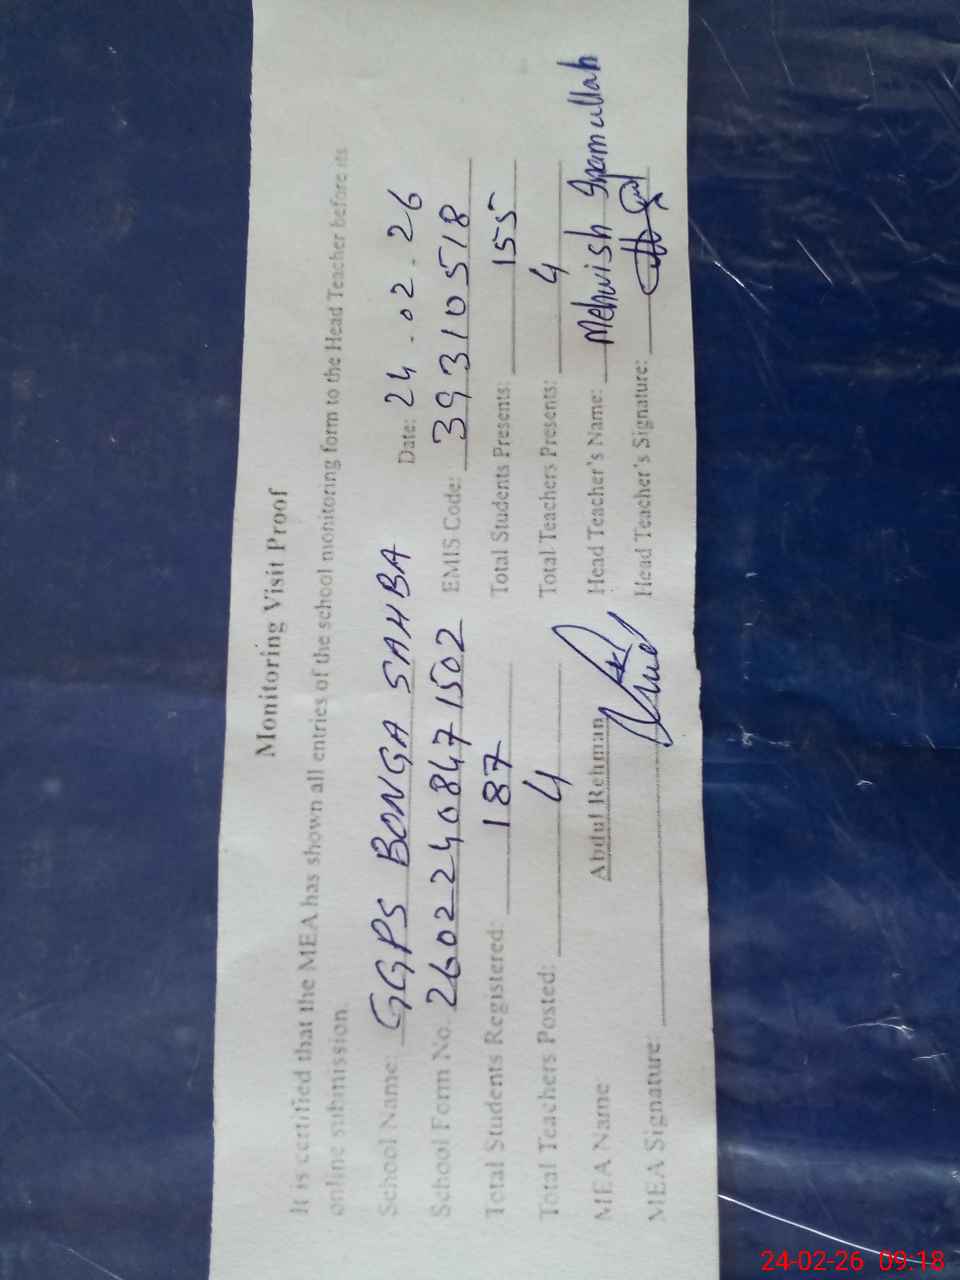 Monitoring Visit Proof
It is certified that the MEA has shown all entries of the school monitoring form to the Head Teacher before its
online submission.
School Name: GGPS BONGA SAHBA Date: 24-02-26
School Form No. 26022408471502 EMIS Code: 39310518
Total Students Registered: 187 Total Students Presents: 155
Total Teachers Posted: 4 Total Teachers Presents: 4
MEA Name Abdul Rehman Head Teacher's Name: Mehwish Inamullah
MEA Signature: Head Teacher's Signature:
24-02-26 09:18